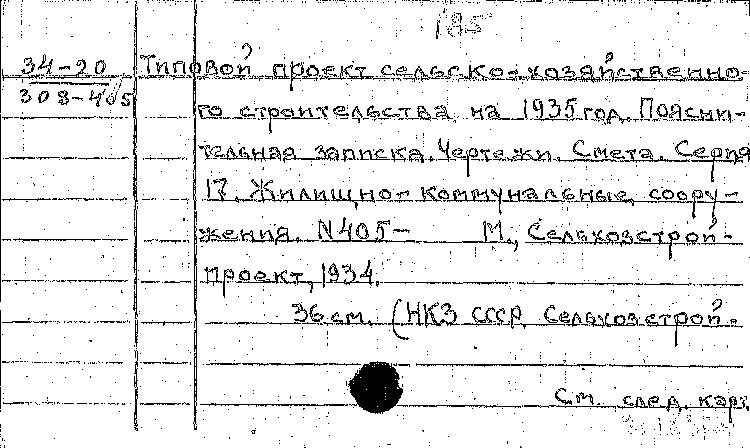 185
34-20 Типовой проект сельско-хозяйственно-
308-405 го строительства на 1935 год. Поясни-
тельная записка. Чертежи. Смета. Серия
17. Жилищно-коммунальные соору-
жения. N405- М., Сельхозстрой-
проект, 1934.
36 см. (НКЗ СССР. Сельхозстрой-
См. след. карт.